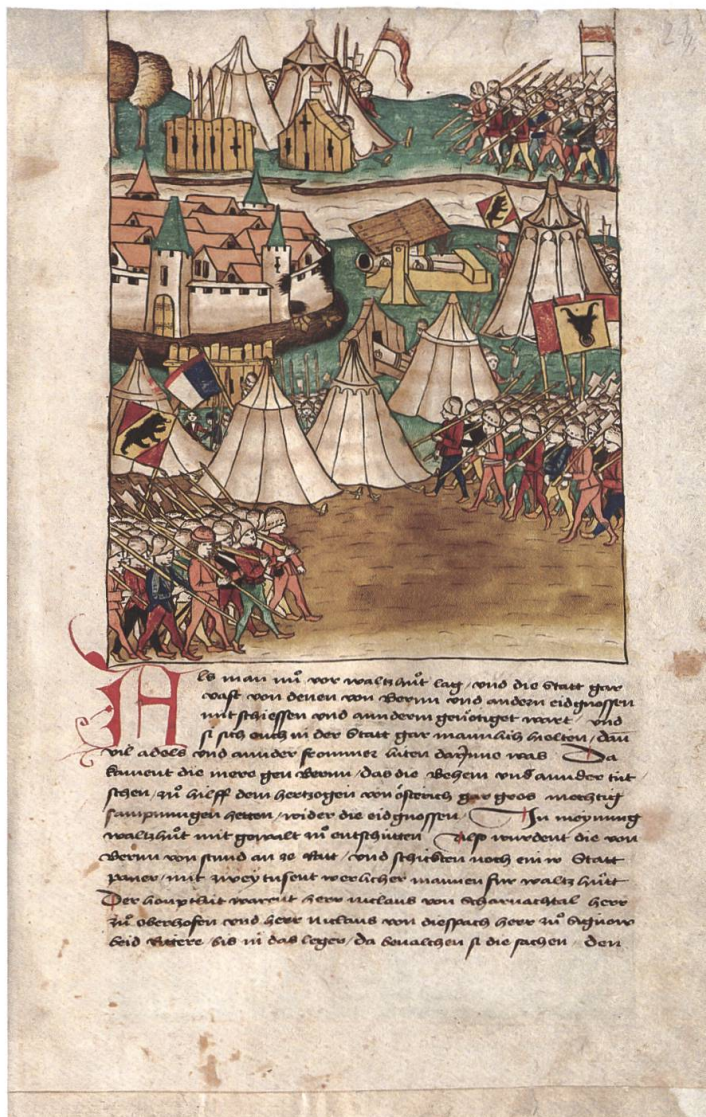 Als man nuͦ vor waltzhuͦt lag / vnd die Statt gar
vast von denen von Bernn vnd andern eidgnossen
mit schiessen vnd annderm genoͤtiget wart / vnd
si sich ouch in der Statt gar mannlich hielten / dan̄
vil adels vnd annder frommer luten darjnne was Da
kament die mere gen Bernn / das die Behem vnd annder tut
schen / zuͦ hilff dem hertzogen von oͤsterich gar gros mechtig
sampnungen hetten / wider die eidgnossen / In meynung
waltzhuͦt mit gewalt zuͦ entschuͤtten Also wurdent die von
Bernn von stund an ze Rat / vnd schickten noch ein ir Statt
paner / mit zwey tusent werlicher mannen fur waltzhuͤtt
Der houptlut warent herr niclaus von Scharnachtal herr
zuͦ oberhofen vnd herr niclaus von diespach herr zuͦ Signow
beid Rittere / bis in das leger / da beualchen si die sachen / den